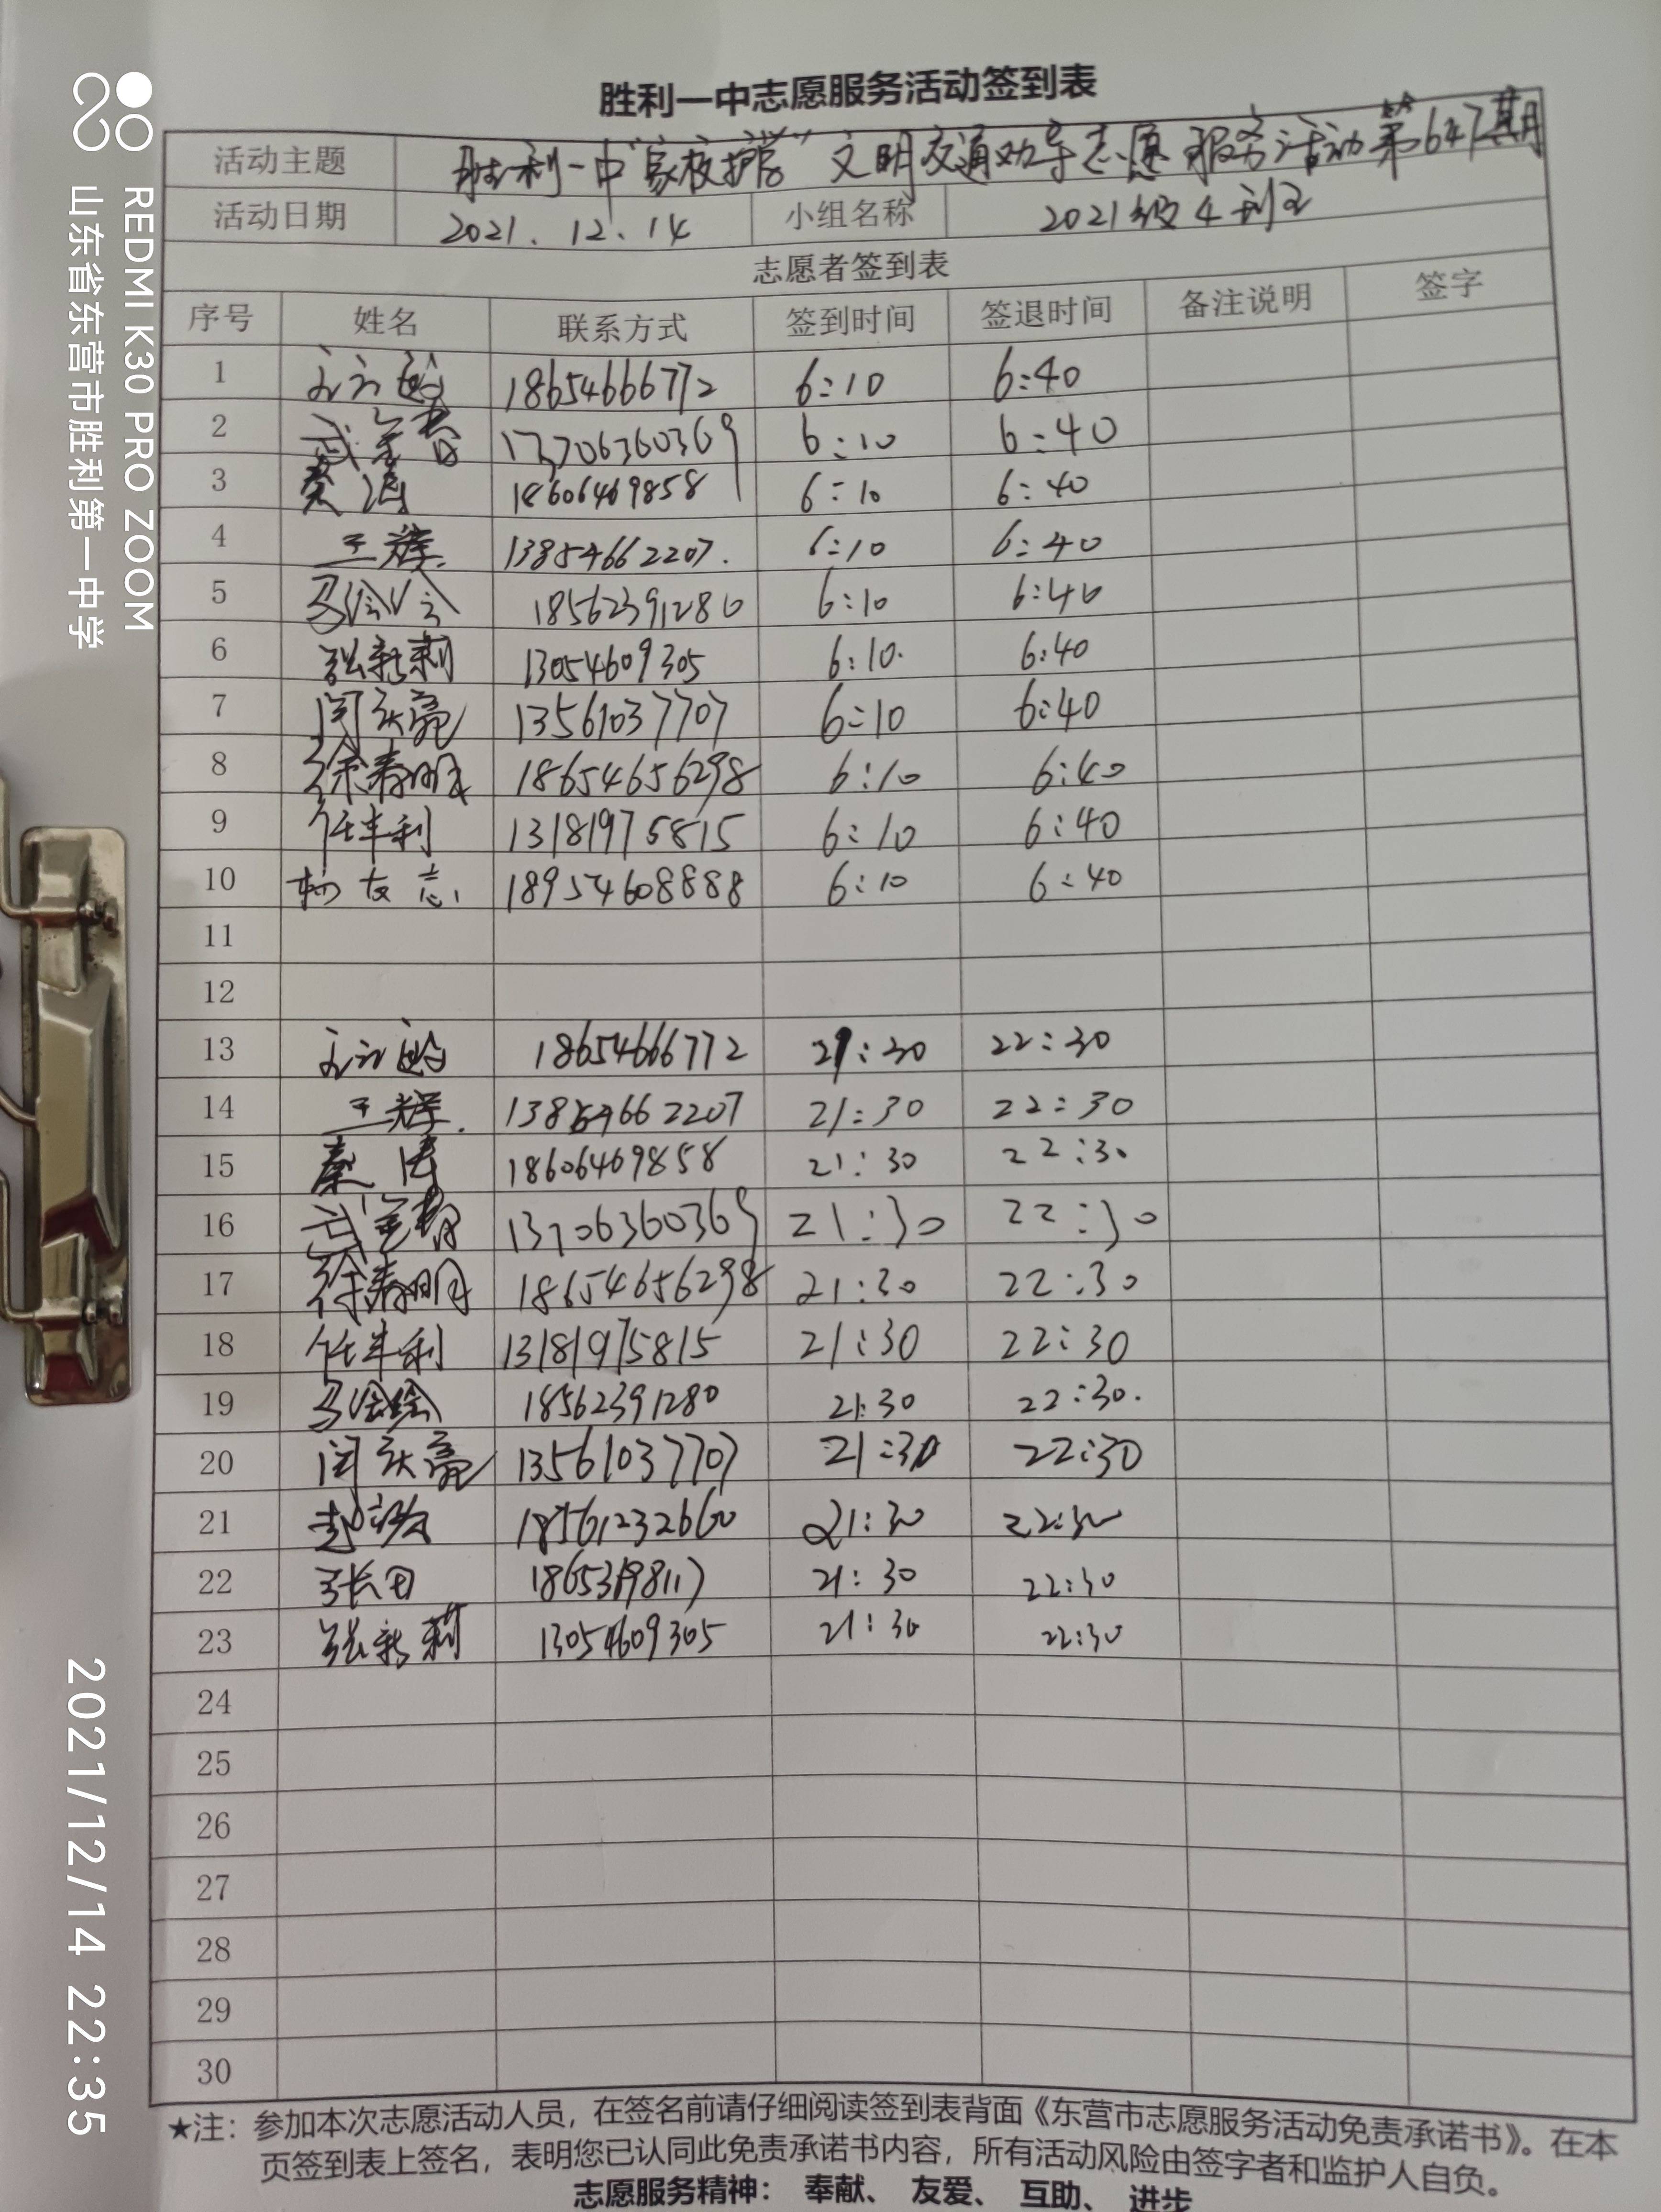 胜利一中志愿服务活动签到表
活动主题 胜利一中"家校护学"文明交通劝导志愿服务活动第647期
活动日期 2021.12.14 小组名称 2021级4部
志愿者签到表
序号 姓名 联系方式 签到时间 签退时间 备注说明 签字
1 18654666772 6:10 6:40
2 13706360369 6:10 6:40
3 秦涛 18606469858 6:10 6:40
4 王辉 13854662207. 6:10 6:40
5 马绘绘 18562391280 6:10 6:40
6 张新莉 13054609305 6:10. 6:40
7 闫庆亮 13561037707 6:10 6:40
8 徐春明 18654656298 6:10 6:40
9 任丰利 13181975815 6:10 6:40
10 杨友志 18954608888 6:10 6:40
11
12
13 18654666772 21:30 22:30
14 王辉. 13854662207 21:30 22:30
15 秦涛 18606469858 21:30 22:30
16 13706360369 21:30 22:30
17 徐春明 18654656298 21:30 22:30
18 任丰利 13181975815 21:30 22:30
19 马绘绘 18562391280 21:30 22:30.
20 闫庆亮 13561037707 21:30 22:30
21 18561232660 21:30 22:30
22 张田 18653198117 21:30 22:30
23 张新莉 13054609305 21:30 22:30
24
25
26
27
28
29
30
★注：参加本次志愿活动人员，在签名前请仔细阅读签到表背面《东营市志愿服务活动免责承诺书》。在本
页签到表上签名，表明您已认同此免责承诺书内容，所有活动风险由签字者和监护人自负。
志愿服务精神： 奉献、 友爱、 互助、 进步
REDMI K30 PRO ZOOM
山东省东营市胜利第一中学
2021/12/14 22:35